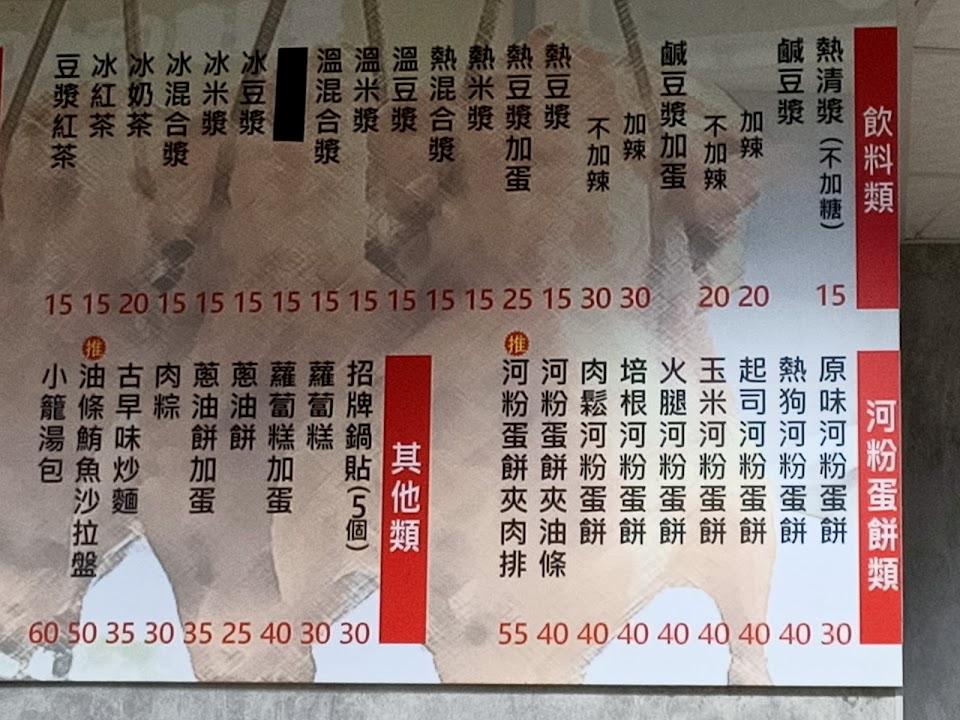 飲料類
熱清漿(不加糖) 15
鹹豆漿
加辣 20
不加辣 20
鹹豆漿加蛋
加辣 30
不加辣 30
熱豆漿 15
熱豆漿加蛋 25
熱米漿 15
熱混合漿 15
溫豆漿 15
溫米漿 15
溫混合漿 15
15
冰豆漿 15
冰米漿 15
冰混合漿 15
冰奶茶 20
冰紅茶 15
豆漿紅茶 15
河粉蛋餅類
原味河粉蛋餅 30
熱狗河粉蛋餅 40
起司河粉蛋餅 40
玉米河粉蛋餅 40
火腿河粉蛋餅 40
培根河粉蛋餅 40
肉鬆河粉蛋餅 40
河粉蛋餅夾油條 40
推 河粉蛋餅夾肉排 55
其他類
招牌鍋貼(5個) 30
蘿蔔糕 30
蘿蔔糕加蛋 40
蔥油餅 25
蔥油餅加蛋 35
肉粽 30
古早味炒麵 35
推 油條鮪魚沙拉盤 50
小籠湯包 60